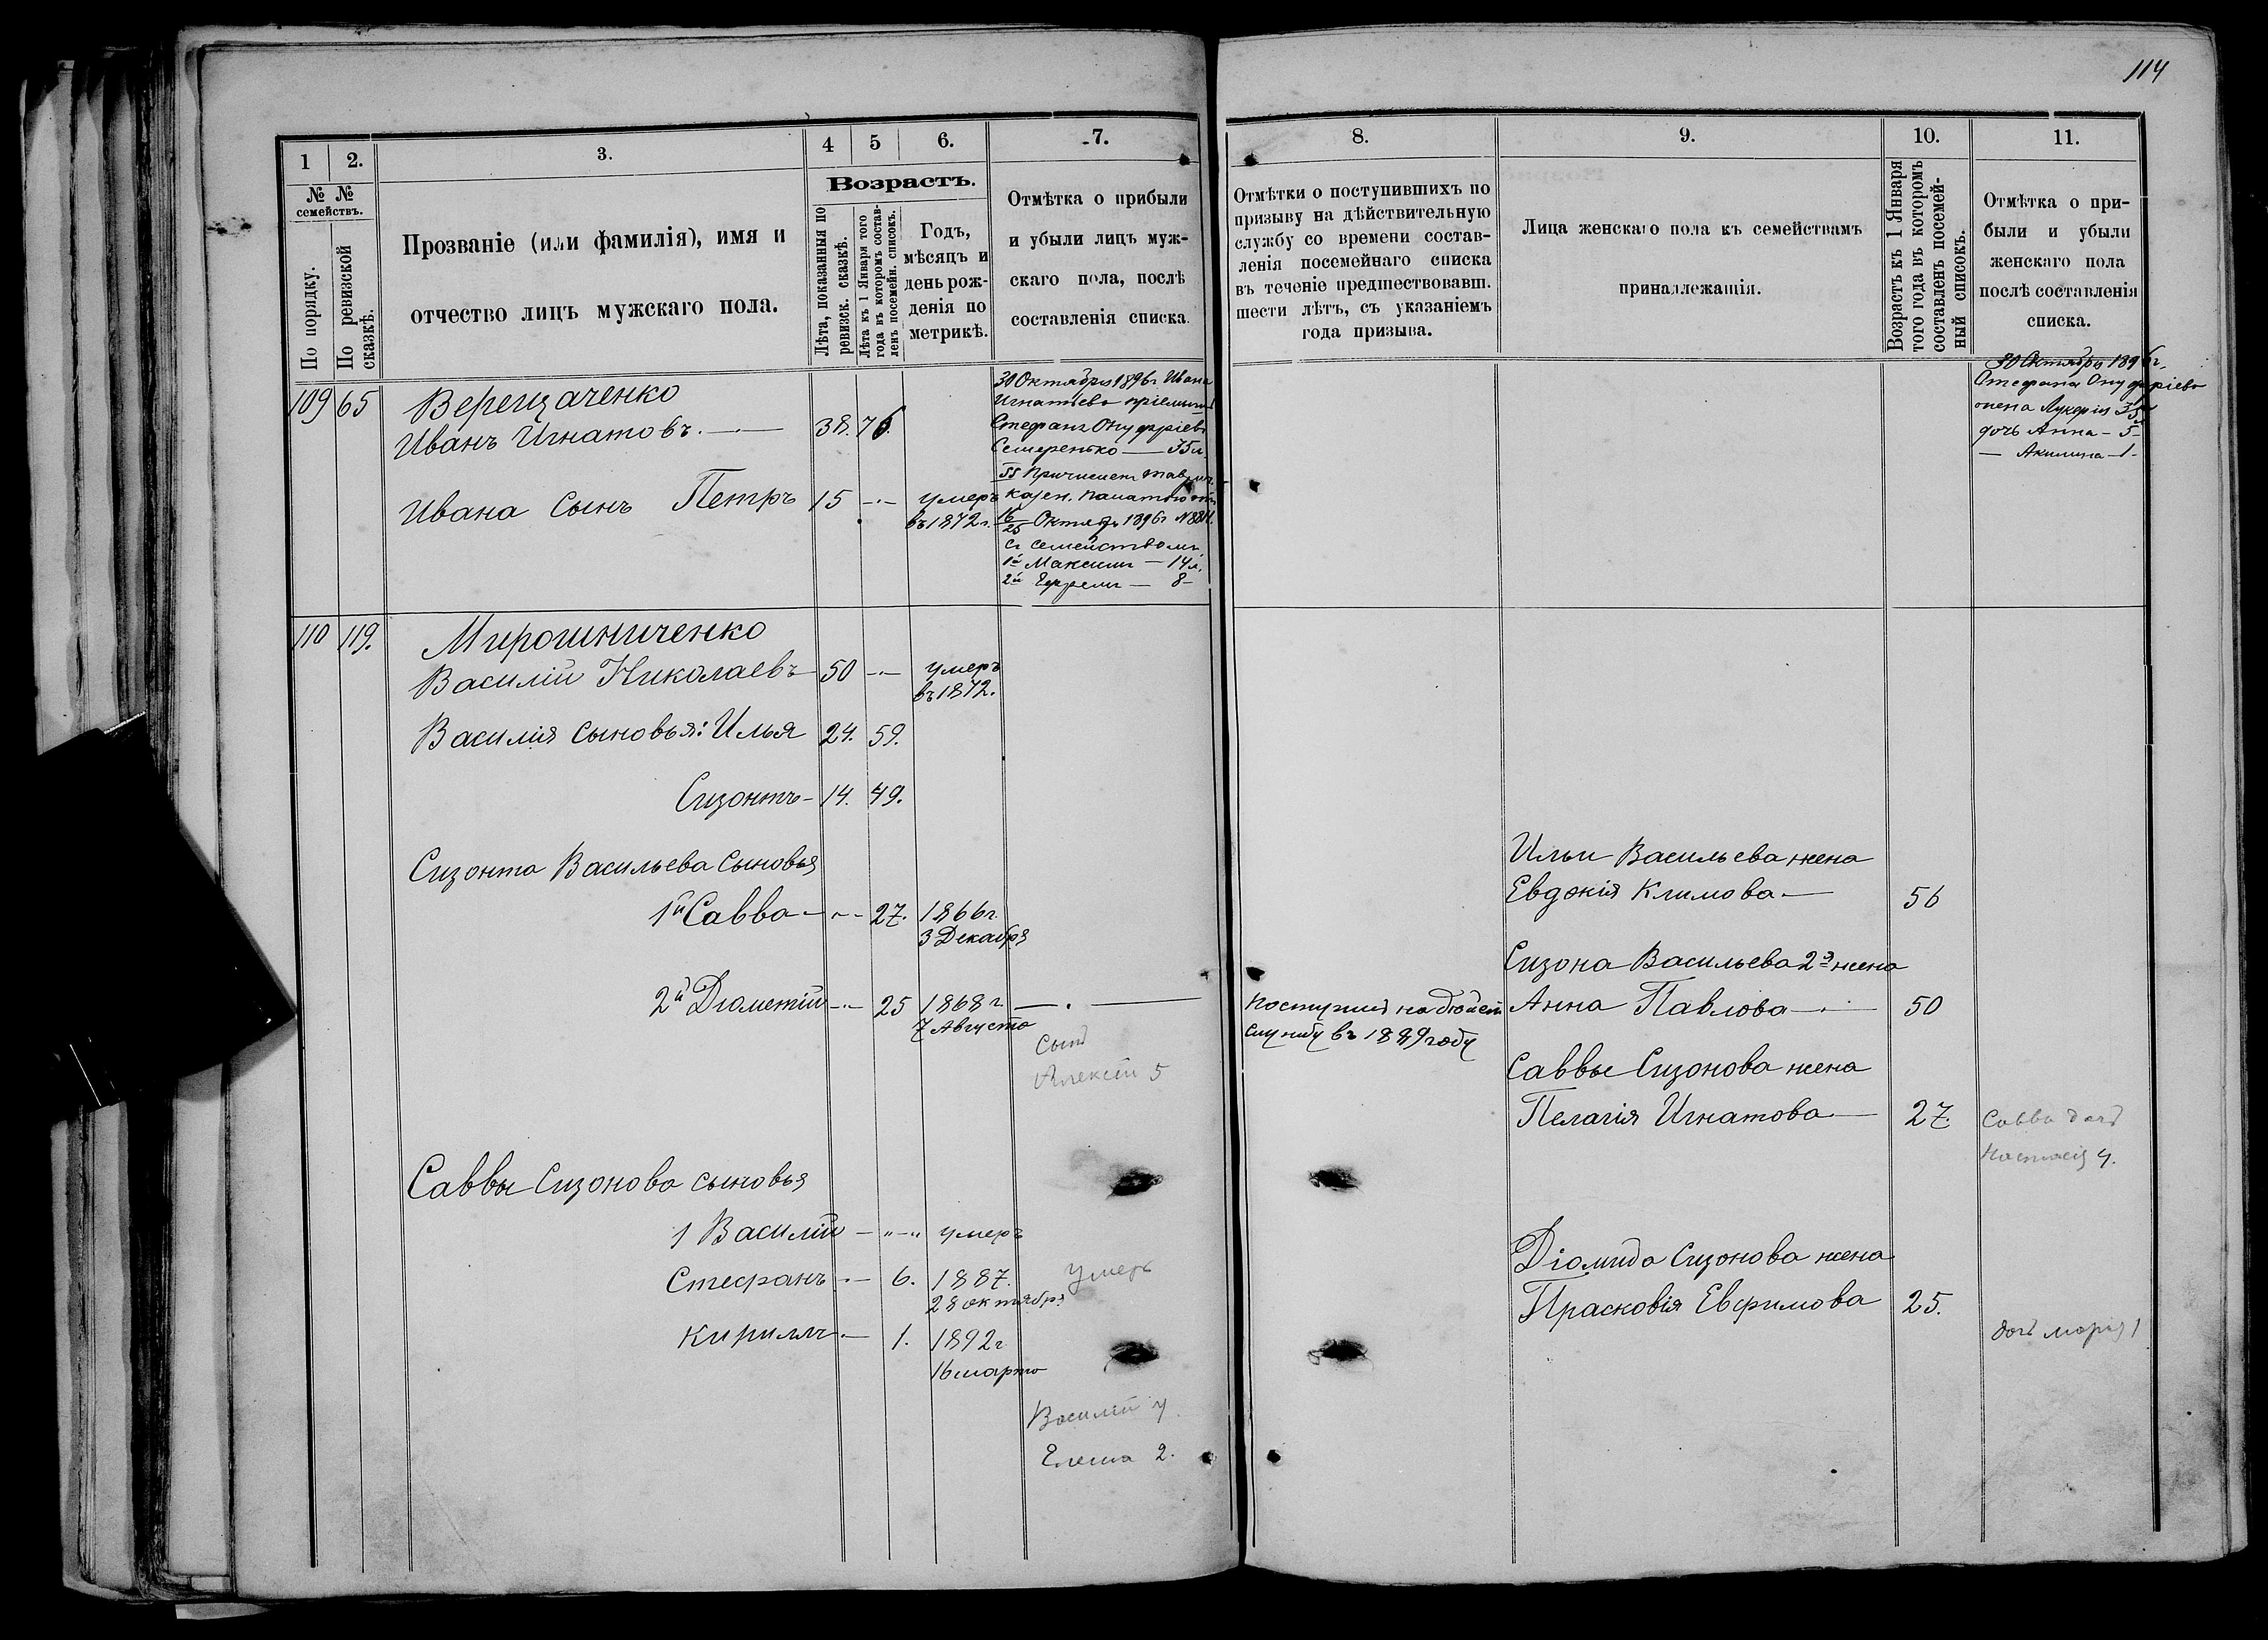 114
1
2.
3.
4
5
6.
7.
№ №
семействъ.
По порядку.
По ревизской
сказкѣ.
Прозваніе (или фамилія), имя и
отчество лицъ мужскаго пола.
Возрастъ.
Лѣта, показанныя по
ревизск. сказкѣ.
Лѣта къ 1 Января того
года въ которомъ состав-
ленъ посемейн. списокъ.
Годъ,
мѣсяцъ и
день рож-
денія по
метрикѣ.
Отмѣтка о прибыли
и убыли лицъ муж-
скаго пола, послѣ
составленія списка.
109 65 Верещаченко
Иванъ Игнатовъ. 38. 76.
Ивана Сынъ Петръ 15 умеръ
въ 1872 г.
30 Октября 1896 г. Ивана
Игнатьева пріемышъ
Стефанъ Онуфріевъ
Семеренько — 35 л.
Причислен Тавр.
казен. палатою отъ
16/25 Октяб. 1896 г. №
съ семействомъ
1й Максим — 14 л.
2й Ефрем — 8 —
110 119. Мирошниченко
Василій Николаевъ 50 умеръ
въ 1872.
Василія сыновья: Илья 24. 59.
Сизонтъ 14. 49.
Сизонта Васильева сыновья
1й Савва 27. 1866 г.
3 Декабря
2й Діометій 25 1868 г.
7 Августа
Сынъ
Алексей 5
Саввы Сизонова сыновья
1 Василій умеръ
Стефанъ 6. 1887.
28 октября
умеръ
Кириллъ 1. 1892 г
16 марта
Василій 4
Елена 2.
8.
9.
10.
11.
Отмѣтки о поступившихъ по
призыву на дѣйствительную
службу со времени состав-
ленія посемейнаго списка
въ теченіе предшествовавш.
шести лѣтъ, съ указаніемъ
года призыва.
Лица женскаго пола къ семействамъ
принадлежащія.
Возрастъ къ 1 Января
того года въ которомъ
составленъ посемей-
ный списокъ.
Отмѣтка о при-
были и убыли
женскаго пола
послѣ составленія
списка.
30 Октября 1896 г.
Стефана Онуфріева
жена Лукерія 35
дочь Анна — 5 —
— Акилина — 1 —
Ильи Васильева жена
Евдокія Климова 56
Сизона Васильева 2я жена
Анна Павлова 50
поступил на дѣйст
службу въ 1889 году
Саввы Сизонова жена
Пелагія Игнатова 27.
Савва дочь
Настасія 4.
Діомида Сизонова жена
Прасковія Евфимова 25.
дочь Марія 1